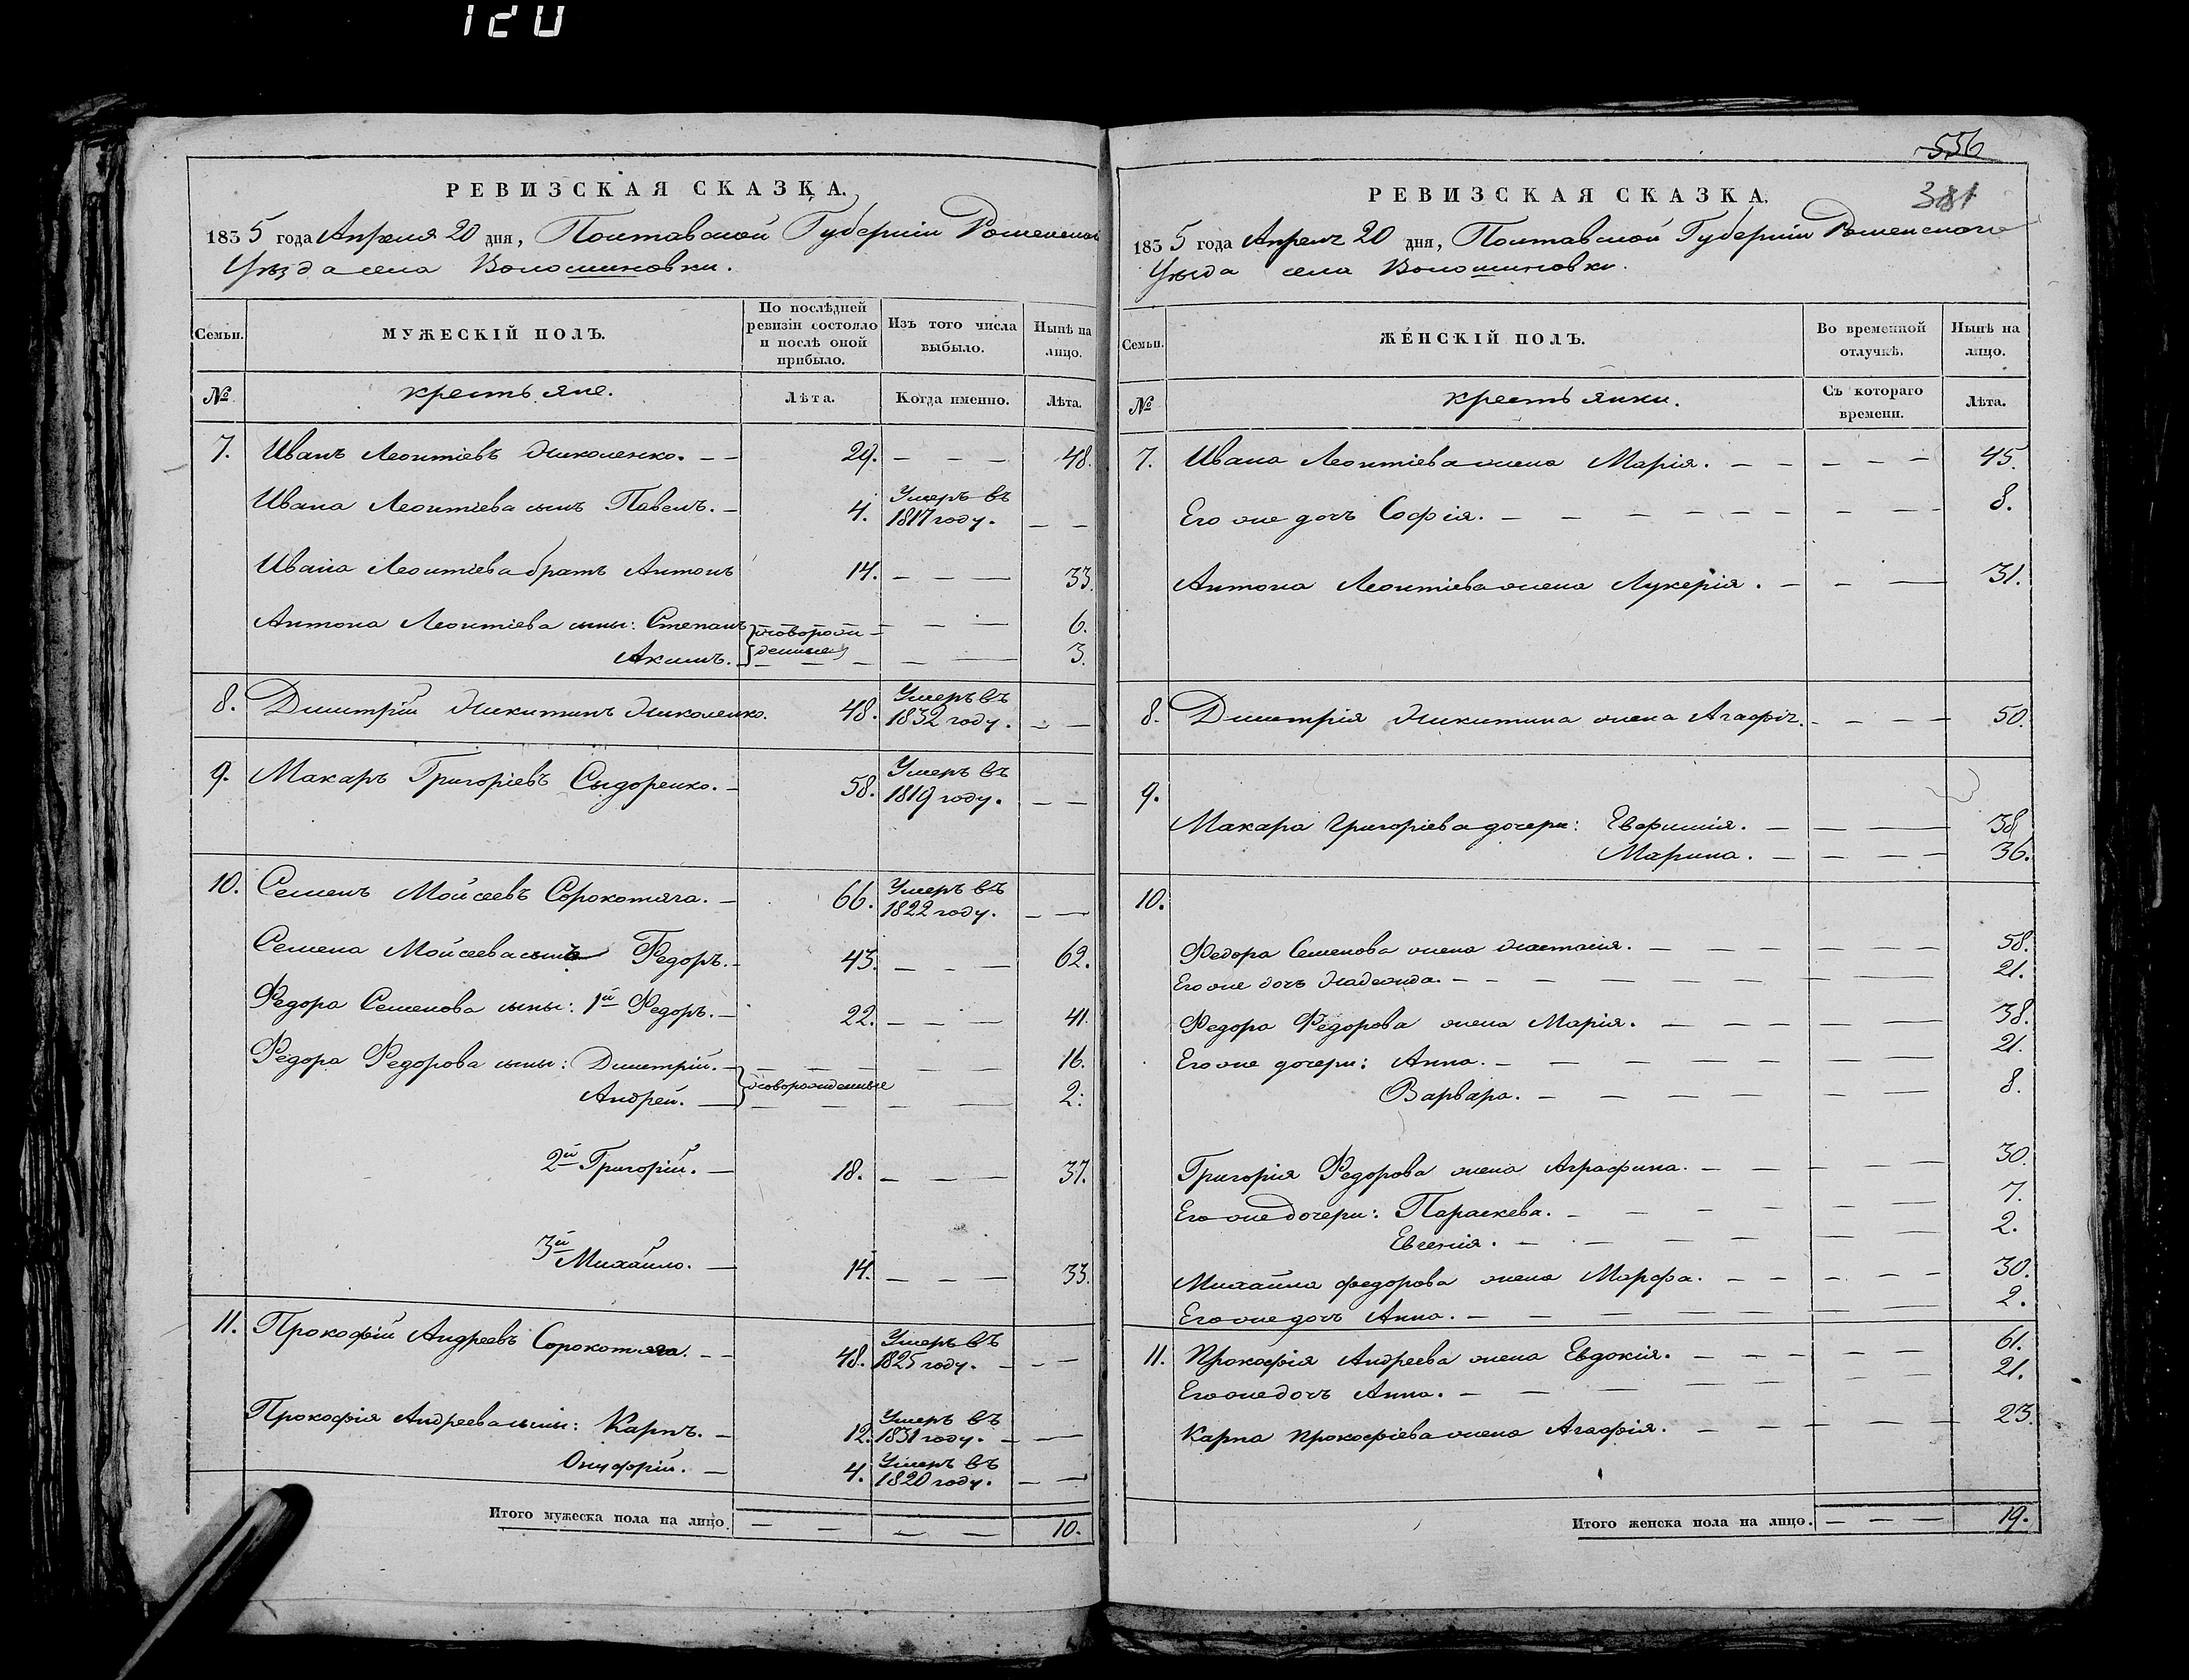 120
РЕВИЗСКАЯ СКАЗКА.
1835 года Апреля 20 дня, Полтавской Губерніи Роменского
Уѣзда села Волошиновки.
Семьи.
МУЖЕСКІЙ ПОЛЪ.
По послѣдней
ревизіи состояло
и послѣ оной
прибыло.
Изъ того числа
выбыло.
Нынѣ на
лицо.
№
крестьяне.
Лѣта.
Когда именно.
Лѣта.
7. Иванъ Леонтіевъ Николенко. — — 29. — — — 48.
Ивана Леонтіева сынъ Павелъ. — 4. Умеръ въ
1817 году. — —
Ивана Леонтіева братъ Антонъ 14. — — — 33.
Антона Леонтіева сыны: Степанъ новорож- — — — 6.
Акимъ. — денные — — — — 3.
8. Димитрій Никитинъ Николенко. 48. Умеръ въ
1832 году. — —
9. Макаръ Григоріевъ Сидоренко. — 58. Умеръ въ
1819 году. — —
10. Семенъ Мойсеевъ Сорокотяга. — 66. Умеръ въ
1822 году. — —
Семена Мойсеева сынъ Федоръ. — 43. — — — 62.
Федора Семенова сыны: 1й Федоръ. — 22. — — — 41.
Федора Федорова сыны: Димитрій. — — — — — 16.
новорожденные
Андрей. — — — — — — 2.
2й Григорій. — 18. — — — 37.
3й Михайло. — 14. — — — 33.
11. Прокофій Андреевъ Сорокотяга. — — 48. Умеръ въ
1825 году. — — —
Прокофія Андреева сыны: Карпъ. — 12. Умеръ въ
1831 году. — —
Онуфрій. — 4. Умеръ въ
1820 году. — —
Итого мужеска пола на лицо. — — — — 10.
556
381
РЕВИЗСКАЯ СКАЗКА.
1835 года Апреля 20 дня, Полтавской Губерніи Роменского
Уѣзда села Волошиновки.
Семьи.
ЖЕНСКІЙ ПОЛЪ.
Во временной
отлучкѣ.
Нынѣ на
лицо.
№
крестьянки.
Съ котораго
времени.
Лѣта.
7. Ивана Леонтіева жена Марія. — — — — — 45.
Его же дочь Софія. — — — — — — 8.
Антона Леонтіева жена Лукерія. — — — 31.
8. Димитрія Никитина жена Агафія. — — — — 50.
9.
Макара Григоріева дочери: Евфимія. — — — 38.
Марина. — — — — 36.
10.
Федора Семенова жена Настасія. — — — — — 58.
Его же дочь Надежда. — — — — — — 21.
Федора Федорова жена Марія. — — — — — 38.
Его же дочери: Анна. — — — — — — 21.
Варвара. — — — — — — 8.
Григорія Федорова жена Аграфина. — — — — — 30.
Его же дочери: Параскева. — — — — — 7.
Евгенія. — — — — — — 2.
Михайла Федорова жена Марфа. — — — — — 30.
Его же дочь Анна. — — — — — — 2.
11. Прокофія Андреева жена Евдокія. — — — — — 61.
Его же дочь Анна. — — — — — — 21.
Карпа Прокофіева жена Агафія. — — — — — 23.
Итого женска пола на лицо. — — — 19.